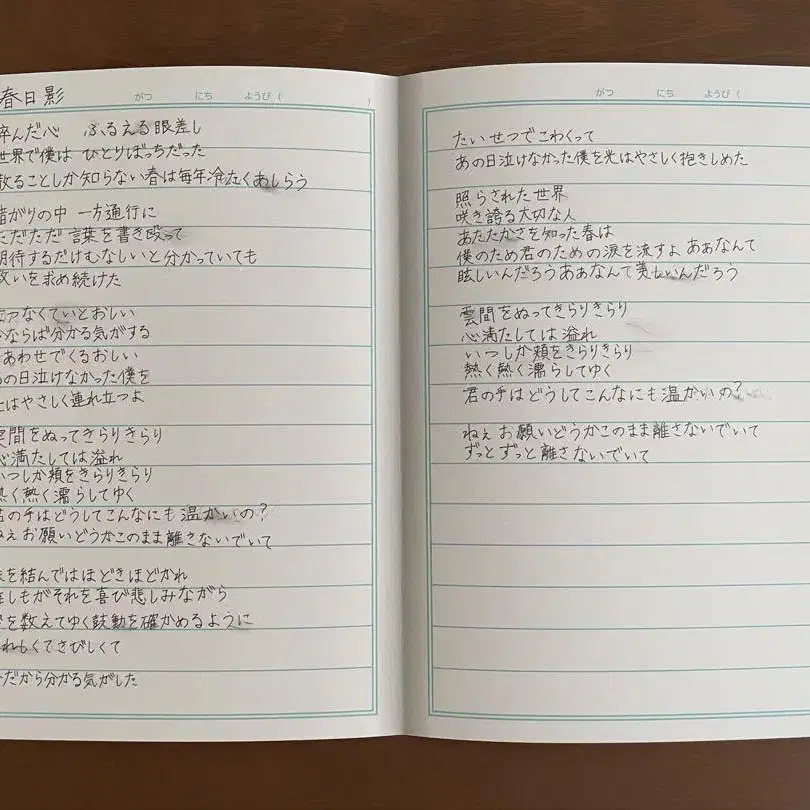 春日影
がつ にち ようび (
んだ心 ふるえる眼差し
世界で僕は ひとりぼっちだった
散ることしか知らない春は毎年冷たくあしらう
暗がりの中 一方通行に
ただただ 言葉を書き殴って
期待するだけむないと分かっていても
救いを求め続けた
つなくていとおしい
ならば分かる気がする
あわせでくるおしい
の日泣けなかった僕を
はやさしく連れ立つよ
雲間をぬってきらりきらり
心満たしては溢れ
いつしか頬をきらりきらり
熱く熱く濡らしてゆく
君の手はどうしてこんなにも温かいの?
ねえお願いどうかこのまま離さないでいて
を結んではほどきほどかれ
しもがそれを喜び悲しみながら
を数えてゆく鼓動を確かめるように
れしくてさびしくて
だから分かる気がした
がつ にち ようび (
たいせつでこわくって
あの日泣けなかった僕を光はやさしく抱きしめた
照らされた世界
咲き誇る大切な人
あたたかさを知った春は
僕のため君のための涙を流すよ あぁなんて
眩しいんだろうあぁなんて美しいんだろう
雲間をぬってきらりきらり
心満たしては溢れ
いつしか頬をきらりきらり
熱く熱く濡らしてゆく
君の手はどうしてこんなにも温かいの?
ねぇ お願いどうかこのまま離さないでいて
ずっとずっと離さないでいて